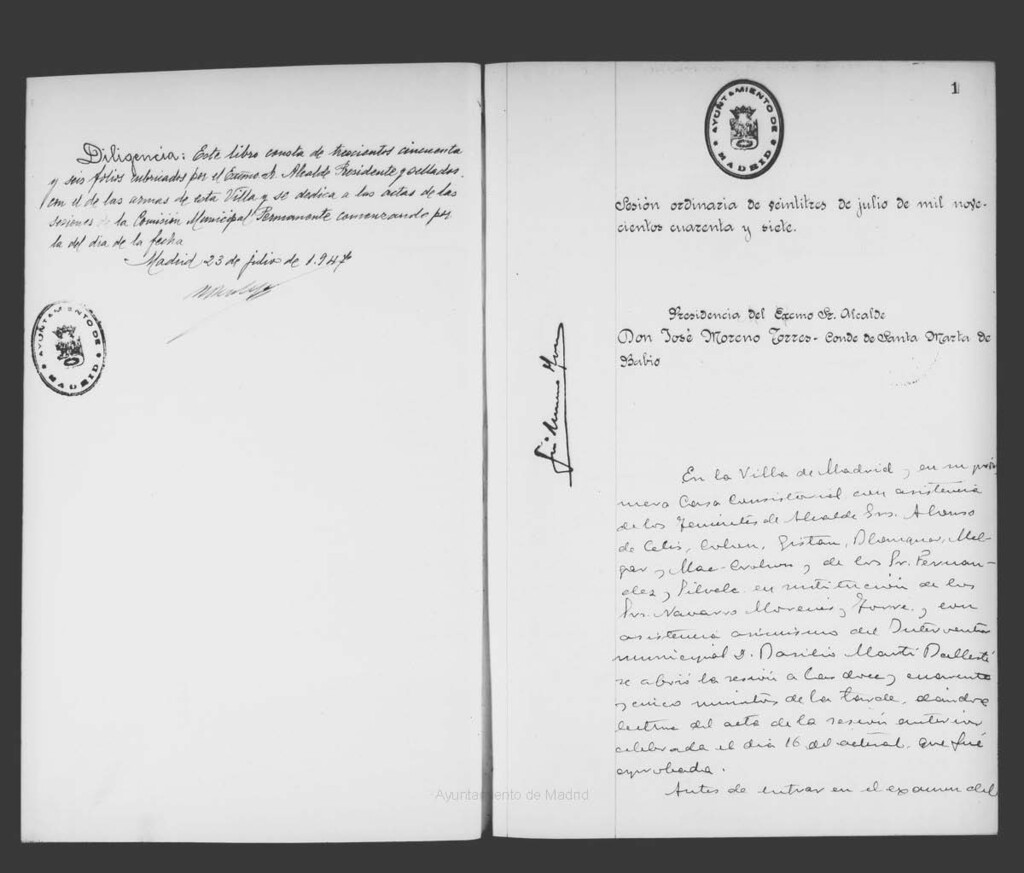 Diligencia: Este libro consta de trescientos cincuenta
y seis folios rubricados por el Excmo Sr. Alcalde Presidente y sellados
con el de las armas de esta Villa y se dedica a las actas de las
sesiones de la Comisión Municipal Permanente comenzando por
la del dia de la fecha
Madrid 23 de julio de 1.947
AYUNTAMIENTO DE MADRID
1
AYUNTAMIENTO DE MADRID
Sesión ordinaria de veintitres de julio de mil nove-
cientos cuarenta y siete.
Presidencia del Excmo Sr. Alcalde
Don José Moreno Torres - Conde de Santa Marta de
Babio
En la Villa de Madrid y en su pri
mera Casa Consistorial con asistencia
de los Tenientes de Alcalde Srs. Alonso
de Celis, Gistau, Mel-
gar y Mac-Crohon y de los Sr. Fernan-
dez y Silvela en sustitución de los
Srs. Navarro Morenés y Torre, y con
asistencia asimismo del Interventor
municipal D. Basilio Martí Ballesté
se abrió la sesión a las doce y cuarenta
y cinco minutos de la tarde, dándose
lectura del acta de la sesión anterior
celebrada el dia 16 del actual, que fué
aprobada.
Antes de entrar en el examen del
Ayuntamiento de Madrid